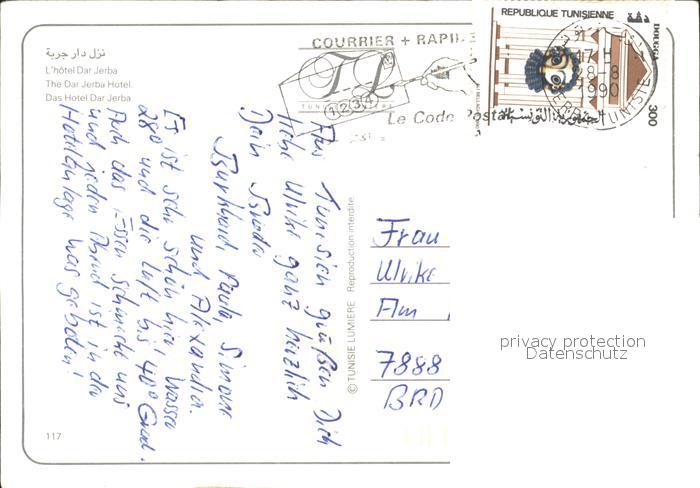 نزل دار جربة
L'hôtel Dar Jerba
The Dar Jerba Hotel.
Das Hotel Dar Jerba
COURRIER + RAPI
1234
Le Code Postal
REPUBLIQUE TUNISIENNE
DOUGGA
300
الجمهورية التونسية
17 H
28-8
1990
TUNISIE
Aus Tunesien grüßen Dich
liebe Ulrike ganz herzlich
Dein Bruder
Burkhard, Paula, Simone
und Alexandra.
Es ist sehr schön hier! Wasser
28° und die Luft bis 40° Grad.
Auch das Essen schmeckt uns
und jeden Abend ist in der
Hotelanlage was geboten!
© TUNISIE LUMIERE Reproduction interdite
Frau
Ulrike
Am
7888
BRD
privacy protection
Datenschutz
117